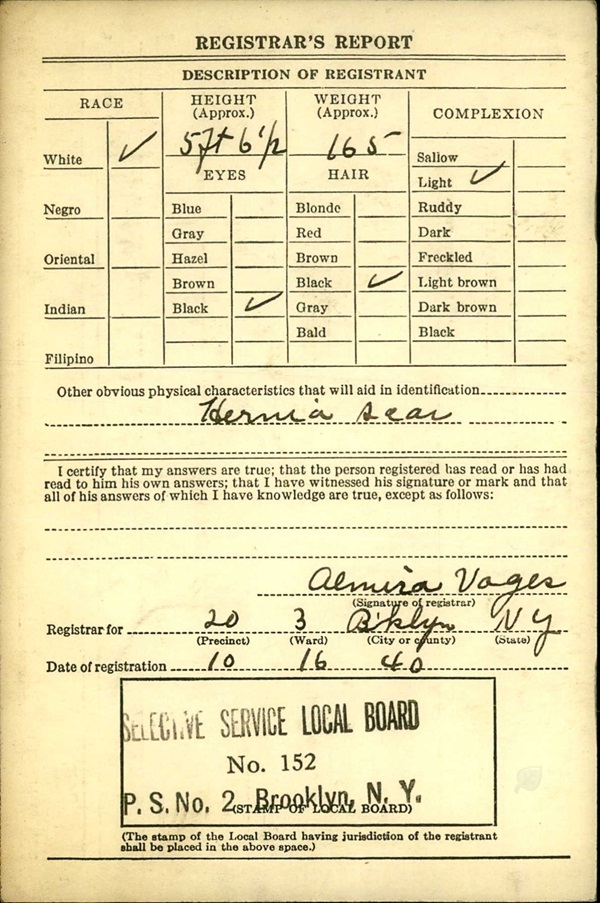 REGISTRAR'S REPORT
DESCRIPTION OF REGISTRANT
RACE
HEIGHT (Approx.)
WEIGHT (Approx.)
COMPLEXION
White ✓
5 ft 6 1/2
165
Sallow
Light ✓
EYES
HAIR
Negro
Blue
Blonde
Ruddy
Gray
Red
Dark
Oriental
Hazel
Brown
Freckled
Brown
Black ✓
Light brown
Indian
Black ✓
Gray
Dark brown
Bald
Black
Filipino
Other obvious physical characteristics that will aid in identification
Hernia scar
I certify that my answers are true; that the person registered has read or has had
read to him his own answers; that I have witnessed his signature or mark and that
all of his answers of which I have knowledge are true, except as follows:
Almira Vages
(Signature of registrar)
Registrar for 20 3 B'klyn N Y
(Precinct) (Ward) (City or county) (State)
Date of registration 10 16 40
SELECTIVE SERVICE LOCAL BOARD
No. 152
P. S. No. 2, Brooklyn, N. Y.
(STAMP OF LOCAL BOARD)
(The stamp of the Local Board having jurisdiction of the registrant
shall be placed in the above space.)